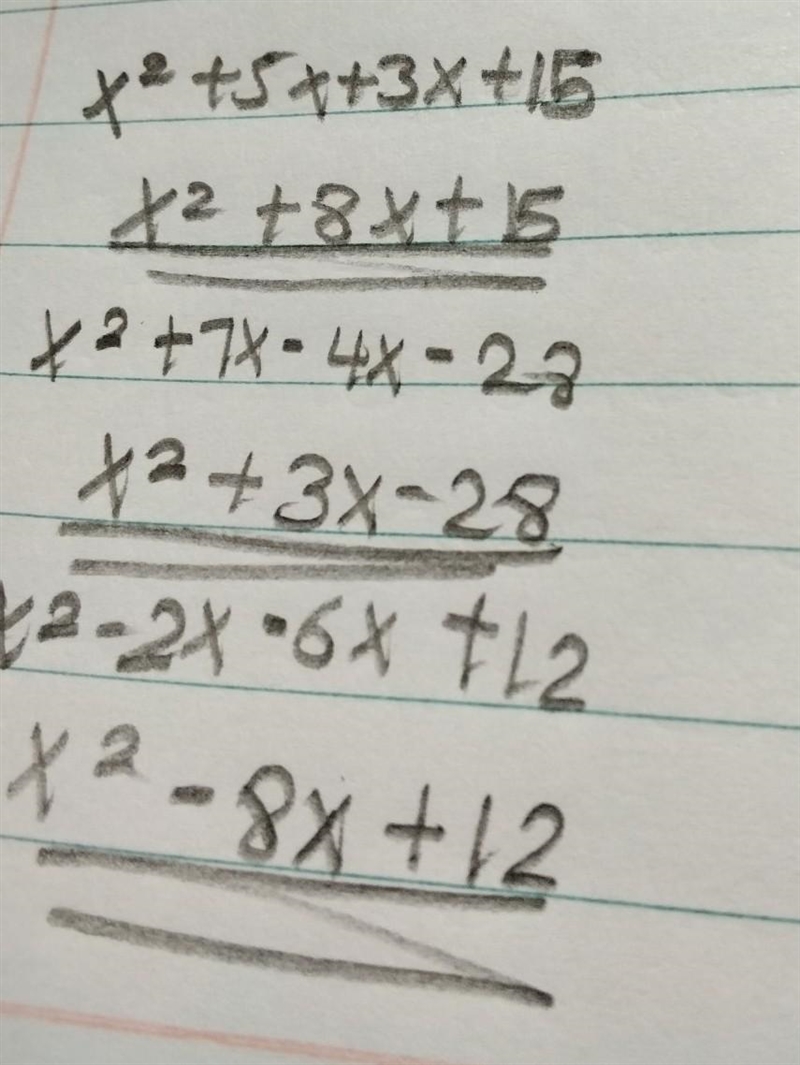 x² +5x+3x+15
x² +8x+15
x² +7x-4x-28
x² +3x-28
x²-2x-6x +12
x² -8x+12